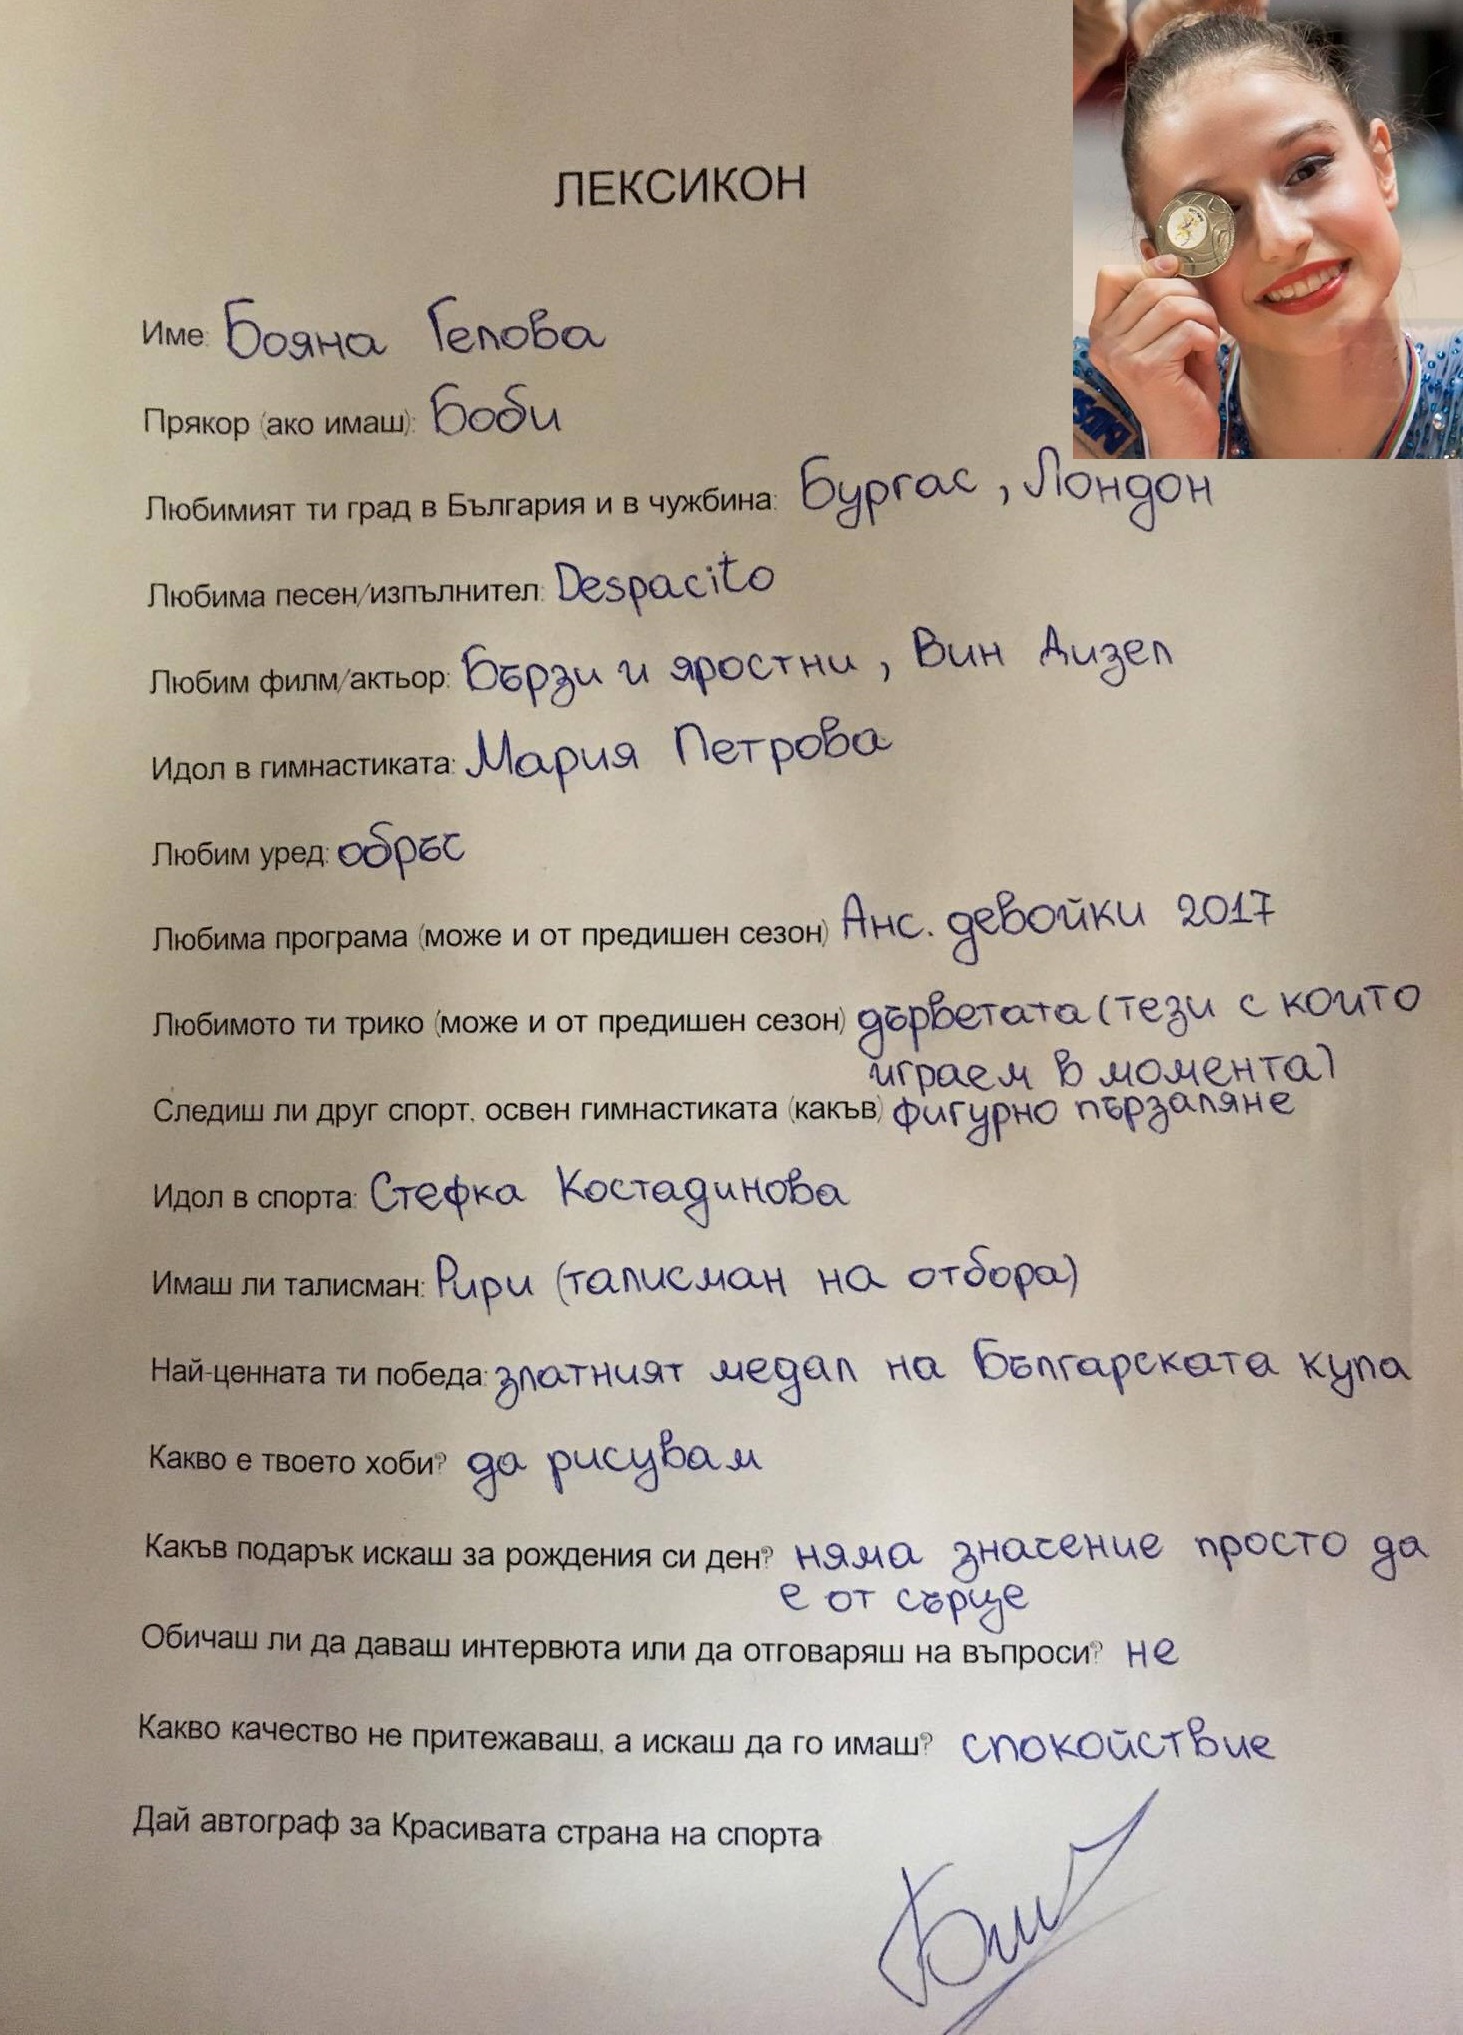 ЛЕКСИКОН
Име: Бояна Гелова
Прякор (ако имаш): Боби
Любимият ти град в България и в чужбина: Бургас, Лондон
Любима песен/изпълнител: Despacito
Любим филм/актьор: Бързи и яростни, Вин Дизел
Идол в гимнастиката: Мария Петрова
Любим уред: обръс
Любима програма (може и от предишен сезон) Анс. девойки 2017
Любимото ти трико (може и от предишен сезон) дърветата (тези с които
играем в момента)
Следиш ли друг спорт, освен гимнастиката (какъв) фигурно пързаляне
Идол в спорта: Стефка Костадинова
Имаш ли талисман: Рири (талисман на отбора)
Най-ценната ти победа: златният медал на Българската купа
Какво е твоето хоби? да рисувам
Какъв подарък искаш за рождения си ден? няма значение просто да
е от сърце
Обичаш ли да даваш интервюта или да отговаряш на въпроси? не
Какво качество не притежаваш, а искаш да го имаш? спокойствие
Дай автограф за Красивата страна на спорта